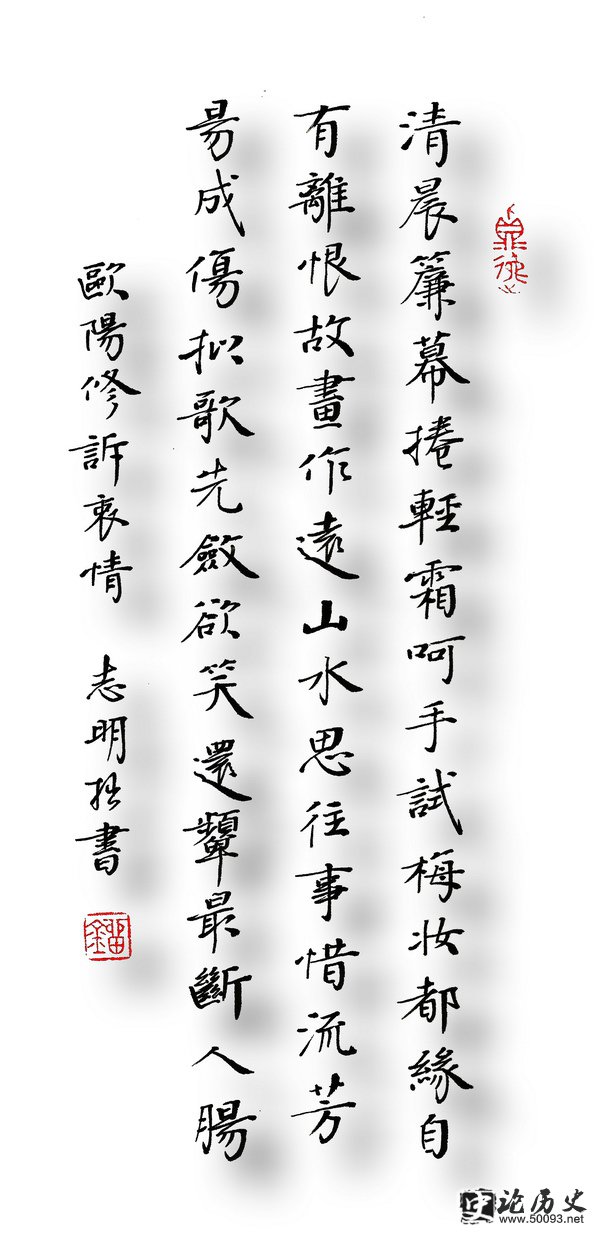 清晨簾幕捲輕霜呵手試梅妝都緣自
有離恨故畫作遠山水思往事惜流芳
易成傷拟歌先斂欲笑還顰最斷人腸
歐陽修訴衷情 志明拙書
论历史
www.50093.net